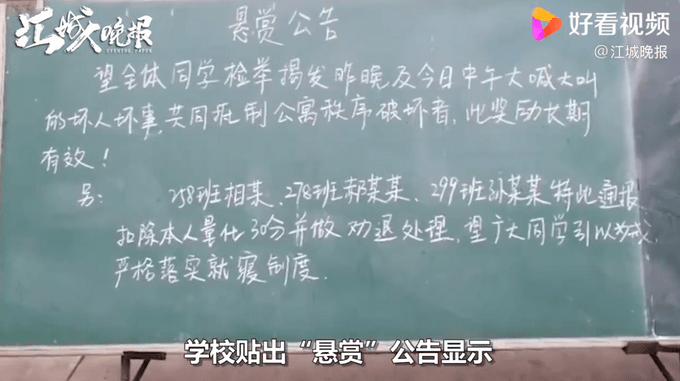 江城晚报
EVENING PAPER
好看视频
@江城晚报
悬赏公告
望全体同学检举揭发昨晚及今日中午大喊大叫
的坏人坏事,共同抵制公寓秩序破坏者,此奖励长期
有效!
另: 258班相某、278班郝某某、299班孙某某特此通报
扣除本人量化30分并做劝退处理,望广大同学引以为戒,
严格落实就寝制度.
学校贴出“悬赏”公告显示